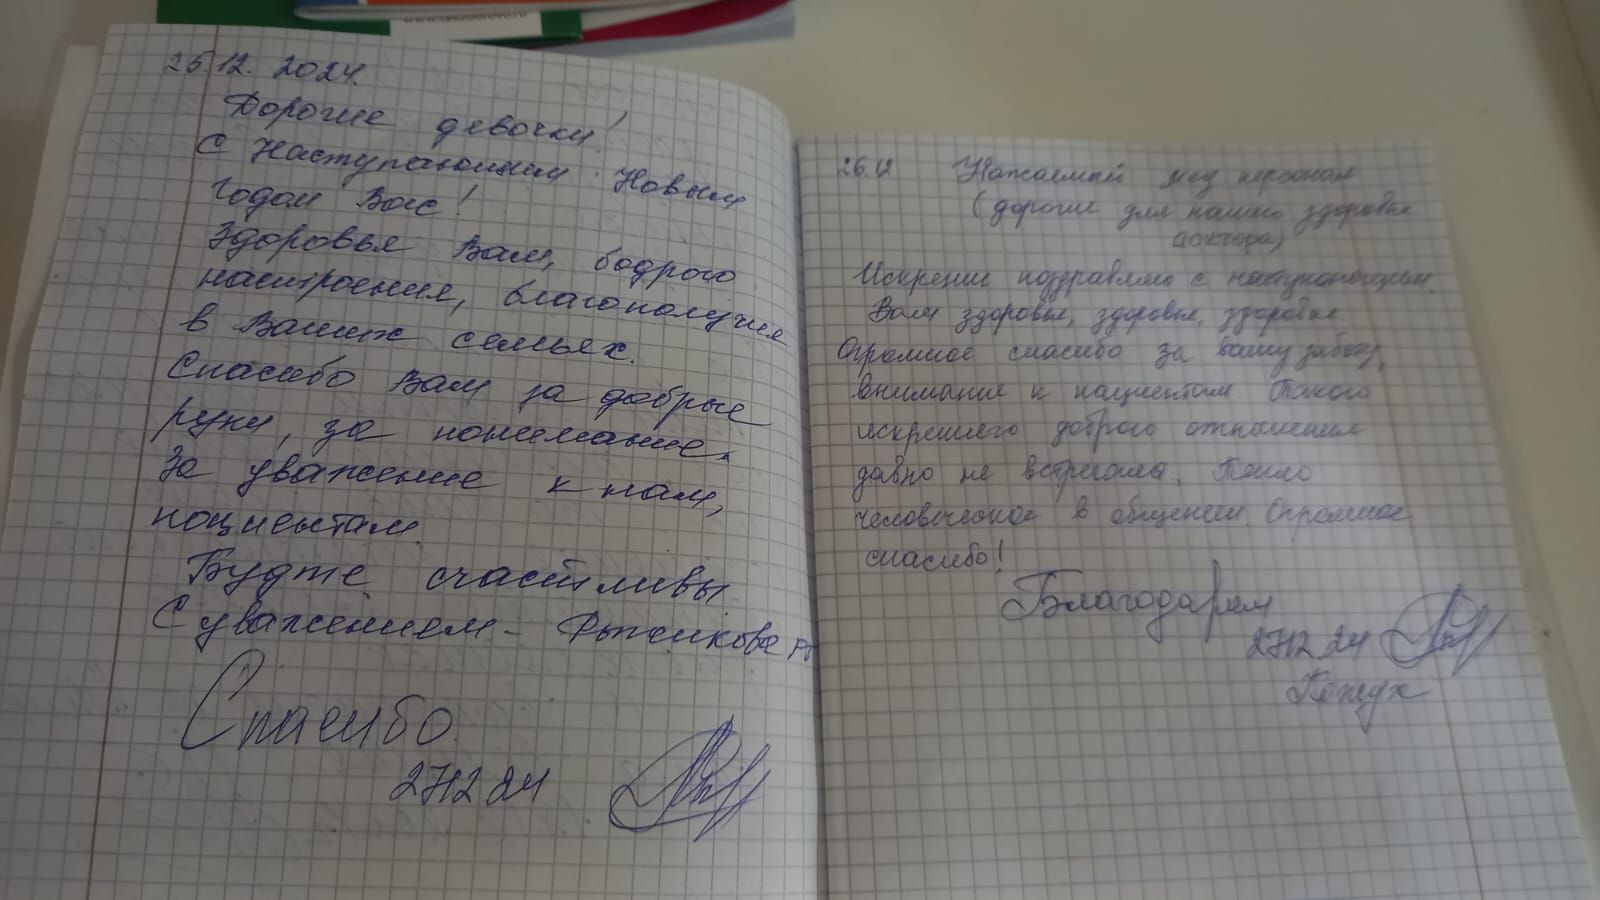 25.12. 2024.
Дорогие девочки!
С Наступающим Новым
Годом Вас!
Здоровья Вам, бодрого
настроения, благополучия
в Ваших семьях.
Спасибо Вам за добрые
руки, за понимание.
За уважение к нам,
пациентам.
Будте счастливы
С уважением - Рыжикова
Спасибо.
27.12 24
26.12 Уважаемый мед персонал
(дорогие для нашего здоровья
доктора)
Искренне поздравляю с наступающим.
Вам здоровья, здоровья, здоровья.
Огромное спасибо за вашу заботу,
внимания к пациентам. Такого
искреннего доброго отношения
давно не встречала. Тепло
человеческое в общении. Огромное
спасибо!
Благодарем
27.12 24